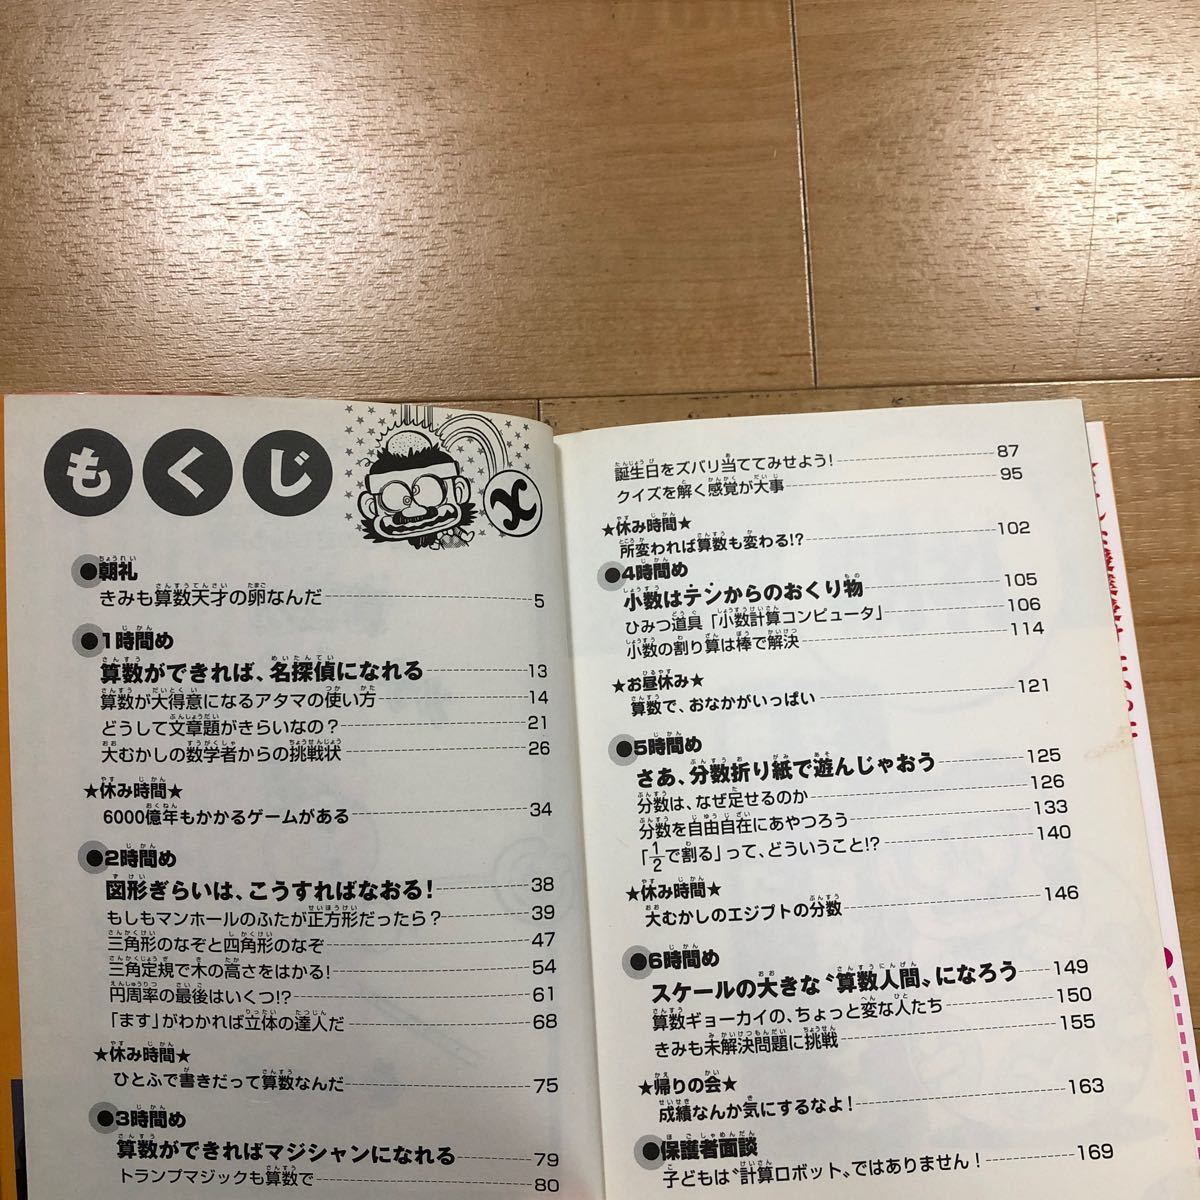 もくじ
●朝礼
きみも算数天才の卵なんだ 5
●1時間め
算数ができれば、名探偵になれる 13
算数が大得意になるアタマの使い方 14
どうして文章題がきらいなの？ 21
大むかしの数学者からの挑戦状 26
★休み時間★
6000億年もかかるゲームがある 34
●2時間め
図形ぎらいは、こうすればなおる！ 38
もしもマンホールのふたが正方形だったら？ 39
三角形のなぞと四角形のなぞ 47
三角定規で木の高さをはかる! 54
円周率の最後はいくつ!? 61
「ます」がわかれば立体の達人だ 68
★休み時間★
ひとふで書きだって算数なんだ 75
●3時間め
算数ができればマジシャンになれる 79
トランプマジックも算数で 80
誕生日をズバリ当ててみせよう! 87
クイズを解く感覚が大事 95
★休み時間★
所変われば算数も変わる!? 102
●4時間め
小数はテンからのおくり物 105
ひみつ道具「小数計算コンピュータ」 106
小数の割り算は棒で解決 114
★お昼休み★
算数で、おなかがいっぱい 121
●5時間め
さあ、分数折り紙で遊んじゃおう 125
分数は、なぜ足せるのか 126
分数を自由自在にあやつろう 133
「1/2で割る」って、どういうこと!? 140
★休み時間★
大むかしのエジプトの分数 146
●6時間め
スケールの大きな〝算数人間〟になろう 149
算数ギョーカイの、ちょっと変な人たち 150
きみも未解決問題に挑戦 155
★帰りの会★
成績なんか気にするなよ! 163
●保護者面談
子どもは〝計算ロボット〟ではありません！ 169